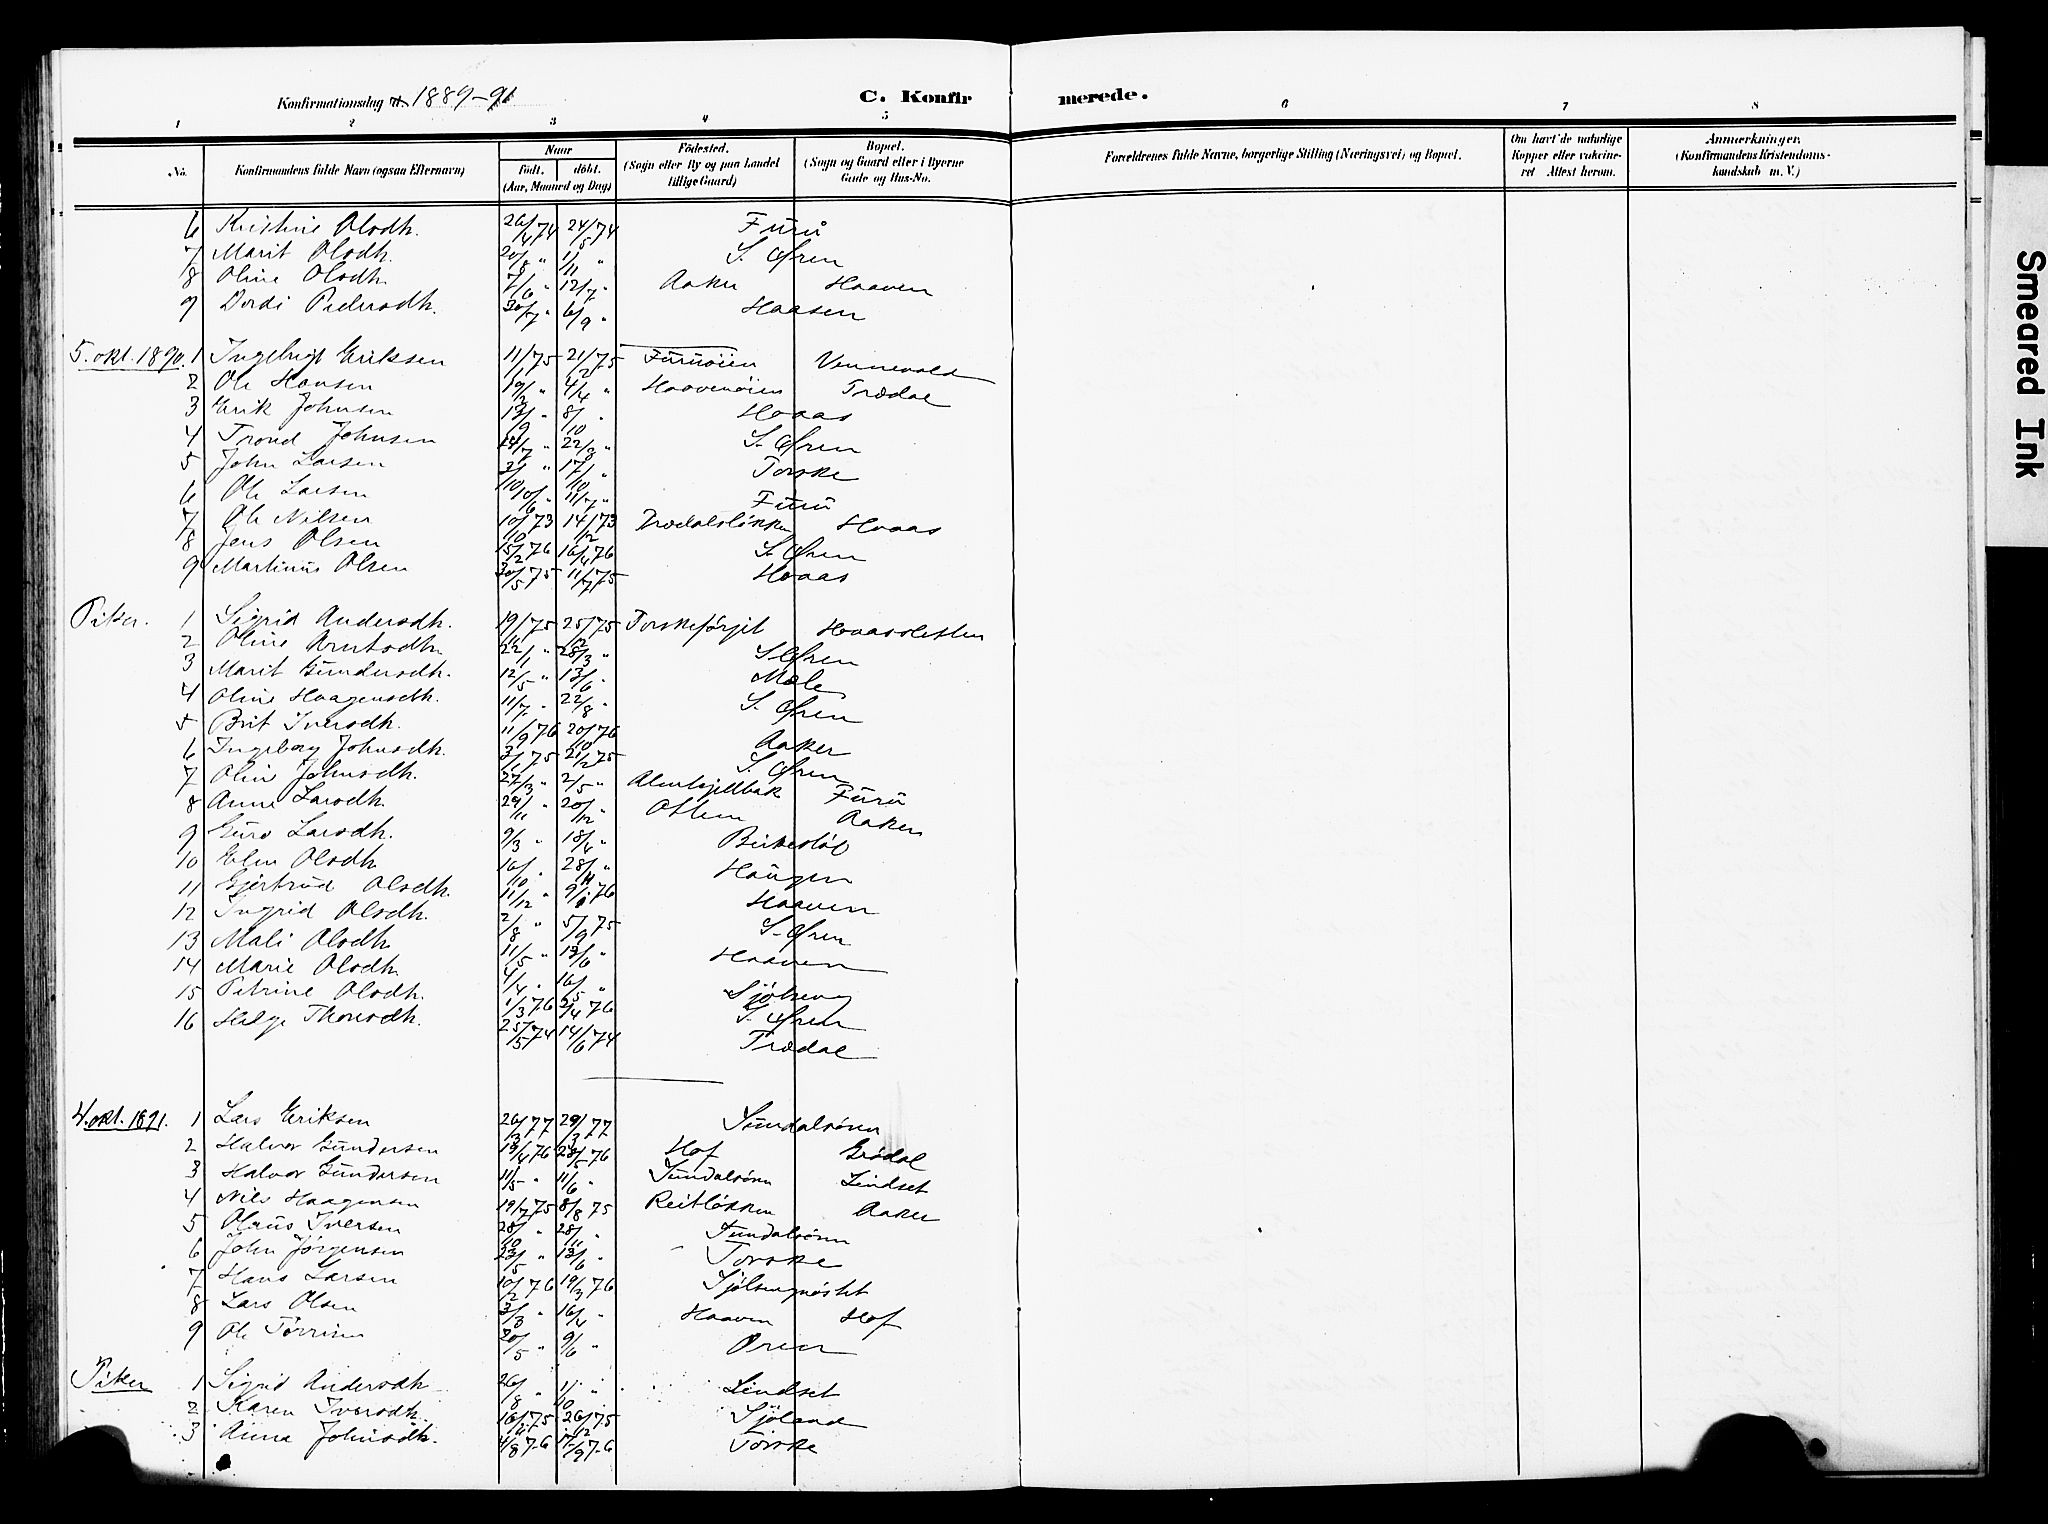 Konfirmationsdag d. 1889-91
C. Konfir merede.
1 2 3 4 5 6 7 8
No. Konfirmandens fulde Navn (ogsaa Efternavn) Naar födt. döbt. (Aar, Maaned og Dag) Födested. (Sogn eller By og paa Landet tillige Gaard) Bopæl. (Sogn og Gaard eller i Byerne Gade og Hus-No. Forældrenes fulde Navne, borgerlige Stilling (Næringsvei) og Bopæl. Om havt de naturlige Kopper eller vakcineret Attest herom. Anmerkninger, (Konfirmandens Kristendomskundskab m. V.)
6 Kristine Olsdh. 26/4 74 24/5 74 Furu
7 Marit Olsdh. 20/8 " 1/11 " S. Øren
8 Oline Olsdh. 7/6 " 12/7 " Aaker Haaven
9 Dordi Pedersdh. 30/7 " 6/9 " Haasen
5. okt. 1890. 1 Ingebrigt Eriksen 11/1 75 21/2 75 Furuøien Vennevold
2 Ole Hansen 19/2 " 4/4 " Haavenøien Trædal
3 Erik Johnsen 13/9 " 8/10 " Hoaas
4 Trond Johnsen 24/7 " 22/8 " S. Øren
5 John Larsen 3/10 " 17/10 " Torske
6 Ole Larsen 10/6 " 11/7 " Furu
7 Ole Nilsen 10/10 73 14/12 73 Trædalsløkken Hoaas
8 Jens Olsen 15/2 76 16/4 76 S. Øren
9 Martinus Olsen 30/5 75 11/7 75 Hoaas
Piker. 1 Sigrid Andersdh. 19/11 75 25/12 75 Torskeførjet Hoaassletten
2 Oline Arntsdh. 22/1 " 28/3 " S Øren
3 Marit Gundersdh. 12/5 " 13/6 " Mæle
4 Oline Haagensdh. 11/7 " 22/8 " S. Øren
5 Brit Iversdh. 11/9 76 20/10 76 Aaker
6 Ingeborg Johnsdh. 3/1 75 21/2 75 S. Øren
7 Olin Johnsdh. 27/3 " 2/5 " Almskjellbak Furu
8 Anne Larsdh. 29/11 " 20/12 " Ottem Aaker
9 Guro Larsdh. 9/3 " 18/4 " Birkesløt
10 Elen Olsdh. 16/10 " 28/11 " Haugen
11 Gjertrud Olsdh. 11/12 " 9/1 76 Haaven
12 Ingrid Olsdh. 2/8 " 5/9 75 S. Øren
13 Mali Olsdh. 11/5 " 13/6 " Haaven
14 Marie Olsdh. 4/4 " 16/5 " Sjølseng
15 Petrine Olsdh. 1/3 76 2/4 76 S. Øren
16 Helge Thoresdh. 25/5 74 14/6 74 Trædal
4. okt. 1891. 1 Lars Eriksen 26/3 77 29/3 77 Sundalsøren
2 Halvor Gundersen 13/4 76 28/5 76 Hof Grødal
3 Halvor Gundersen 11/5 " 11/6 " Sundalsøren Lindset
4 Nils Haagensen 19/7 75 8/8 75 Reitløkken Aaker
5 Olaus Iversen 28/10 " 28/11 " Sundalsøren
6 John Jørgensen 23/5 " 13/6 " Torske
7 Hans Larsen 10/2 76 19/3 76 Sjølsengnøstet
8 Lars Olsen 3/3 " 16/4 " Haaven Hof
9 Ole Tørrisen 20/5 " 9/6 " Øren
Piker 1 Sigrid Andersdh. 26/8 " 1/10 " Lindset
2 Karen Iversdh. 16/11 75 26/12 75 Sjøland
3 Anna Johnsdh. 4/8 76 17/9 76 Torske
Smeared Ink